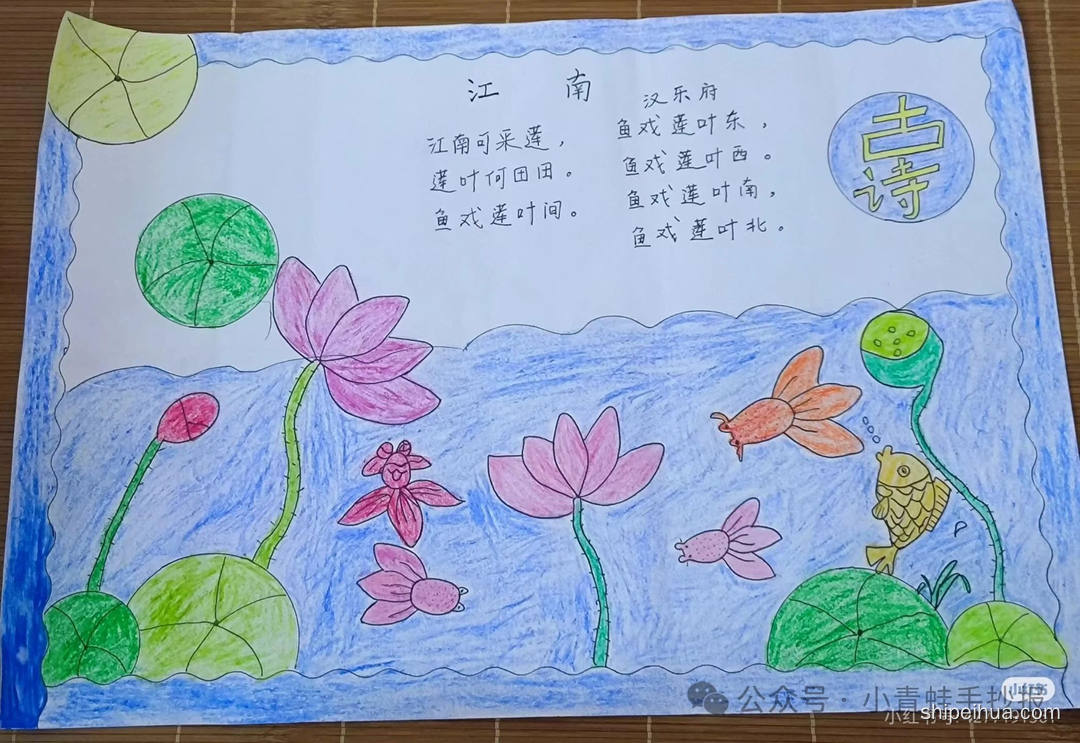 江 南
汉乐府
江南可采莲，
莲叶何田田。
鱼戏莲叶间。
鱼戏莲叶东，
鱼戏莲叶西。
鱼戏莲叶南，
鱼戏莲叶北。
古诗
小红书
公众号·小青蛙手抄报
shipeihua.com